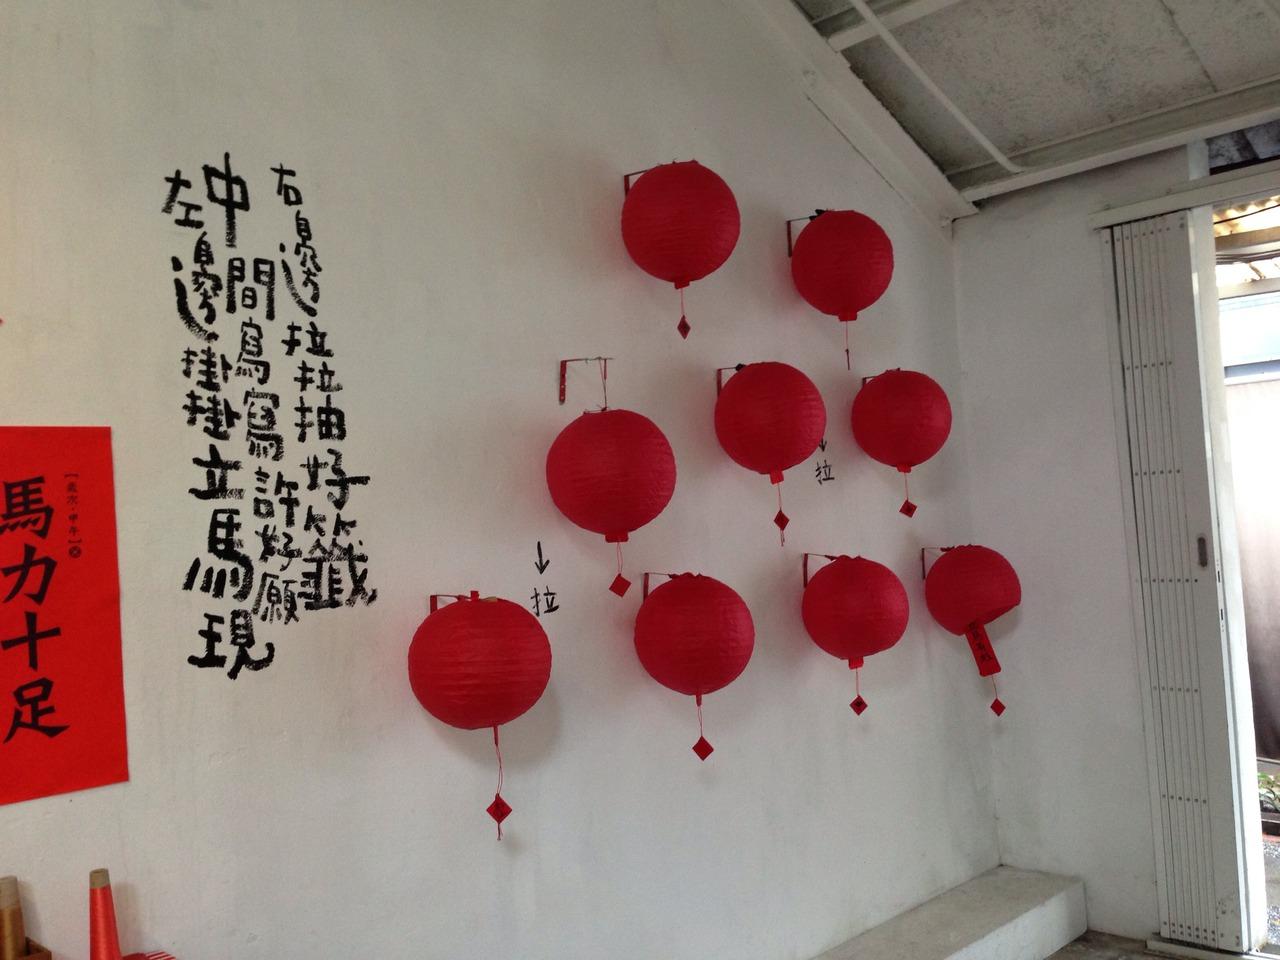 右邊拉拉抽好籤
中間寫寫許好願
左邊掛掛立馬現
拉
拉
【歲次·甲午】
馬力十足